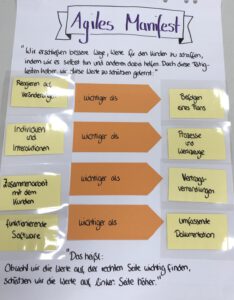 Agiles Manifest
"Wir erschließen bessere Wege, Werte für den Kunden zu schaffen,
indem wir es selbst tun und anderen dabei helfen. Durch diese Tätig-
keiten haben wir diese Werte zu schätzen gelernt."
Reagieren auf
Veränderung
wichtiger als
Befolgen
eines Plans
Individuen
und
Interaktionen
wichtiger als
Prozesse
und
Werkzeuge
Zusammenarbeit
mit dem
Kunden
wichtiger als
Vertrags-
verhandlungen
funktionierende
Software
wichtiger als
umfassende
Dokumentation
"Das heißt:
Obwohl wir die Werte auf der rechten Seite wichtig finden,
schätzen wir die Werte auf linker Seite höher."